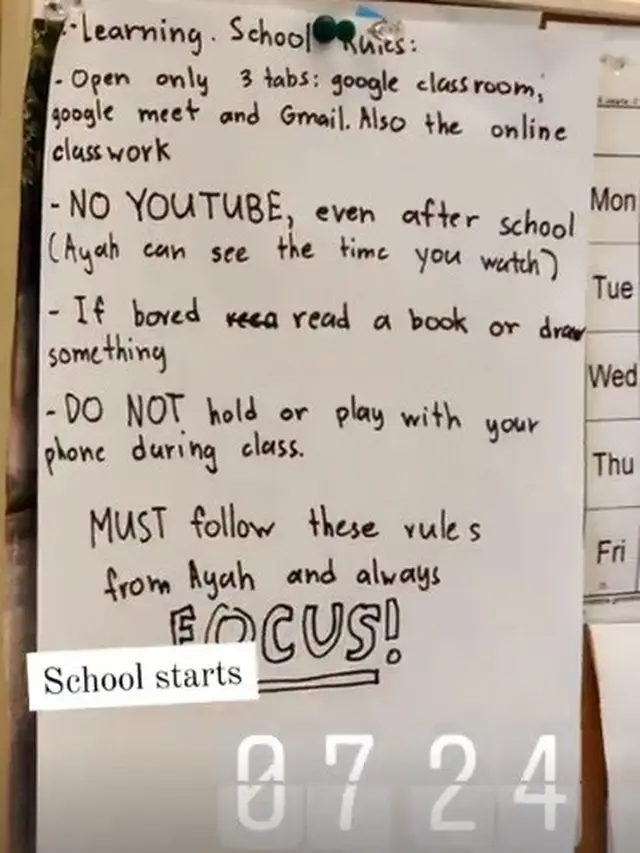 -Learning. School Rules:
- Open only 3 tabs: google classroom,
google meet and Gmail. Also the online
classwork
- NO YOUTUBE, even after school
(Ayah can see the time you watch)
- If bored read a book or draw
something
- DO NOT hold or play with your
phone during class.
MUST follow these rules
from Ayah and always
FOCUS!
School starts
07 24
Mon
Tue
Wed
Thu
Fri